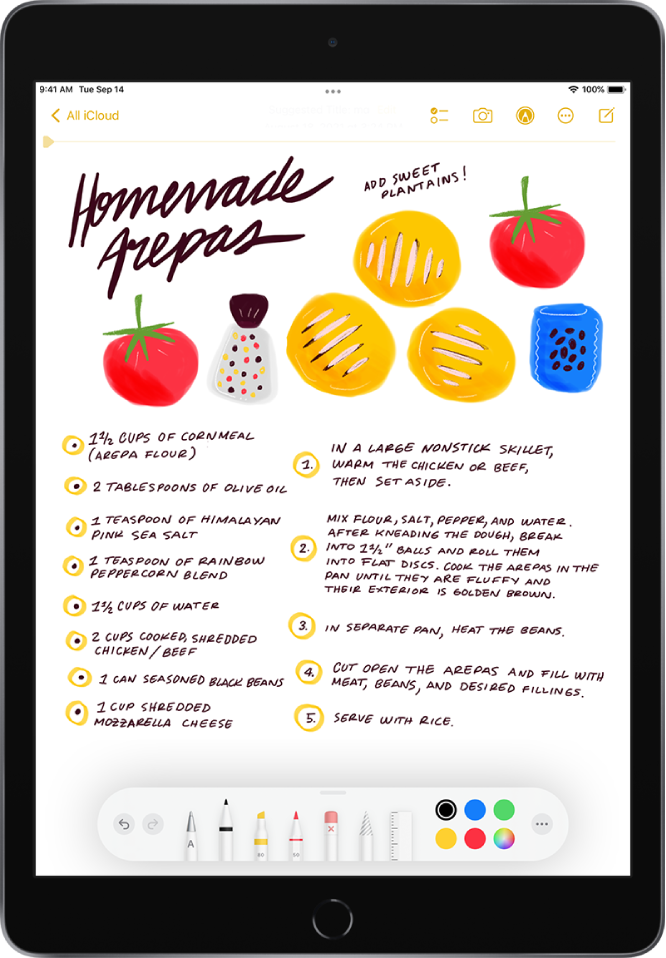 9:41 AM Tue Sep 14
100%
All iCloud
Homemade
Arepas
ADD SWEET
PLANTAINS!
1½ CUPS OF CORNMEAL
(AREPA FLOUR)
2 TABLESPOONS OF OLIVE OIL
1 TEASPOON OF HIMALAYAN
PINK SEA SALT
1 TEASPOON OF RAINBOW
PEPPERCORN BLEND
1½ CUPS OF WATER
2 CUPS COOKED, SHREDDED
CHICKEN/BEEF
1 CAN SEASONED BLACK BEANS
1 CUP SHREDDED
MOZZARELLA CHEESE
1. IN A LARGE NONSTICK SKILLET,
WARM THE CHICKEN OR BEEF,
THEN SET ASIDE.
MIX FLOUR, SALT, PEPPER, AND WATER.
AFTER KNEADING THE DOUGH, BREAK
2. INTO 1½" BALLS AND ROLL THEM
INTO FLAT DISCS. COOK THE AREPAS IN THE
PAN UNTIL THEY ARE FLUFFY AND
THEIR EXTERIOR IS GOLDEN BROWN.
3. IN SEPARATE PAN, HEAT THE BEANS.
4. CUT OPEN THE AREPAS AND FILL WITH
MEAT, BEANS, AND DESIRED FILLINGS.
5. SERVE WITH RICE.
A
80
50